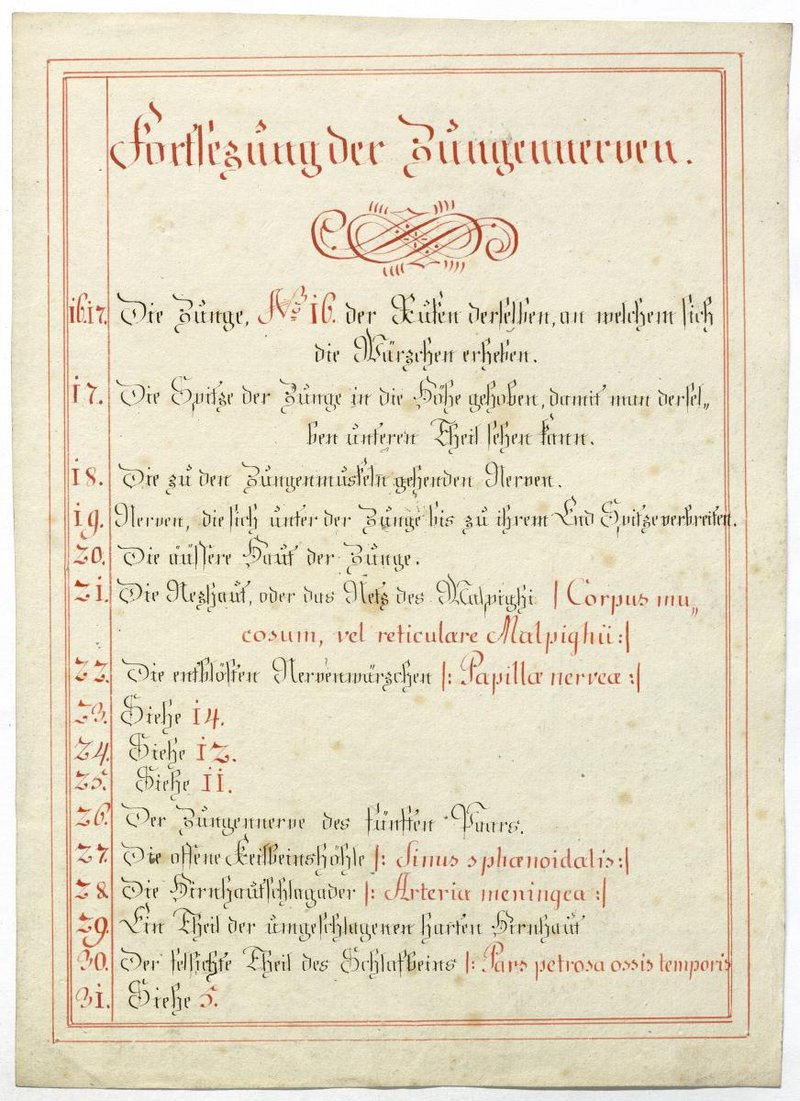 Fortsezung der Zungennerven.
16.17. Die Zunge, No 16. der Rüken derselben, an welchem sich
die Wärzchen erheben.
17. Die Spitze der Zunge in die Höhe gehoben, damit man dersel„
ben unteren Theil sehen kann.
18. Die zu den Zungenmuskeln gehenden Nerven.
19. Nerven, die sich unter der Zunge bis zu ihrem End Spitze verbreiten.
20. Die äüssere Haut der Zunge.
21. Die Nezhaut, oder das Netz des Malpighi |: Corpus mu„
cosum, vel reticulare Malpighii :|
22. Die entblösten Nervenwärzchen |: Papillæ nerveæ :|
23. Siehe 14.
24. Siehe 12.
25. Siehe 11.
26. Der Zungennerve des fünften Paars.
27. Die offene Keilbeinshöhle |: Sinus sphænoidalis :|
28. Die Hirnhautschlagader |: Arteria meningea :|
29. Ein Theil der umgeschlagenen harten Hirnhaut
30. Der felsichte Theil des Schlafbeins |: Pars petrosa ossis temporis
31. Siehe 5.